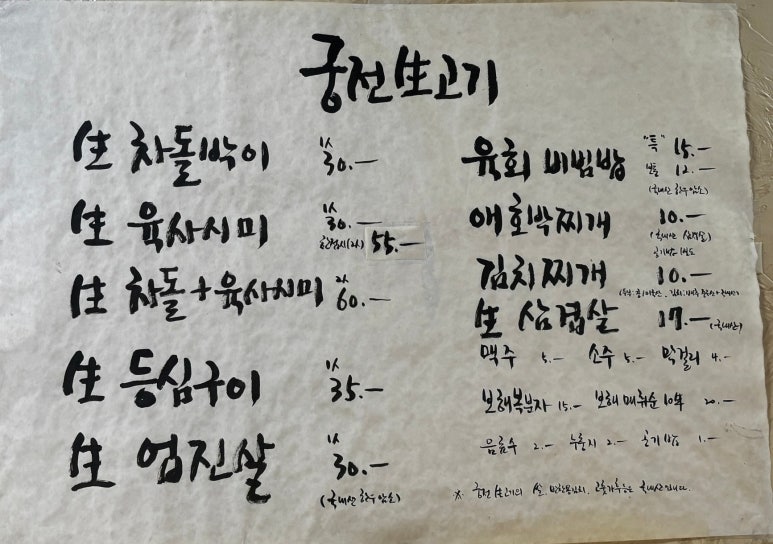 궁전生고기
生 차돌박이 1人 30.-
生 육사시미 1人 30.-
한접시(2人) 55.-
生 차돌+육사시미 2人 60.-
生 등심구이 1人 35.-
生 엄진살 1人 30.-
(국내산 한우 암소)
육회 비빔밥 "특" 15.-
보통 12.-
(국내산 한우 암소)
애호박찌개 10.-
(국내산 삼겹살)
공기밥 별도
김치찌개 10.-
生 삼겹살 17.- (국내산)
맥주 5.- 소주 5.- 막걸리 4.-
보해복분자 15.- 보해 매취순 10年 20.-
음료수 2.- 누룽지 2.- 공기밥 1.-
※ 궁전 生고기의 쌀, 고춧가루는 국내산입니다.